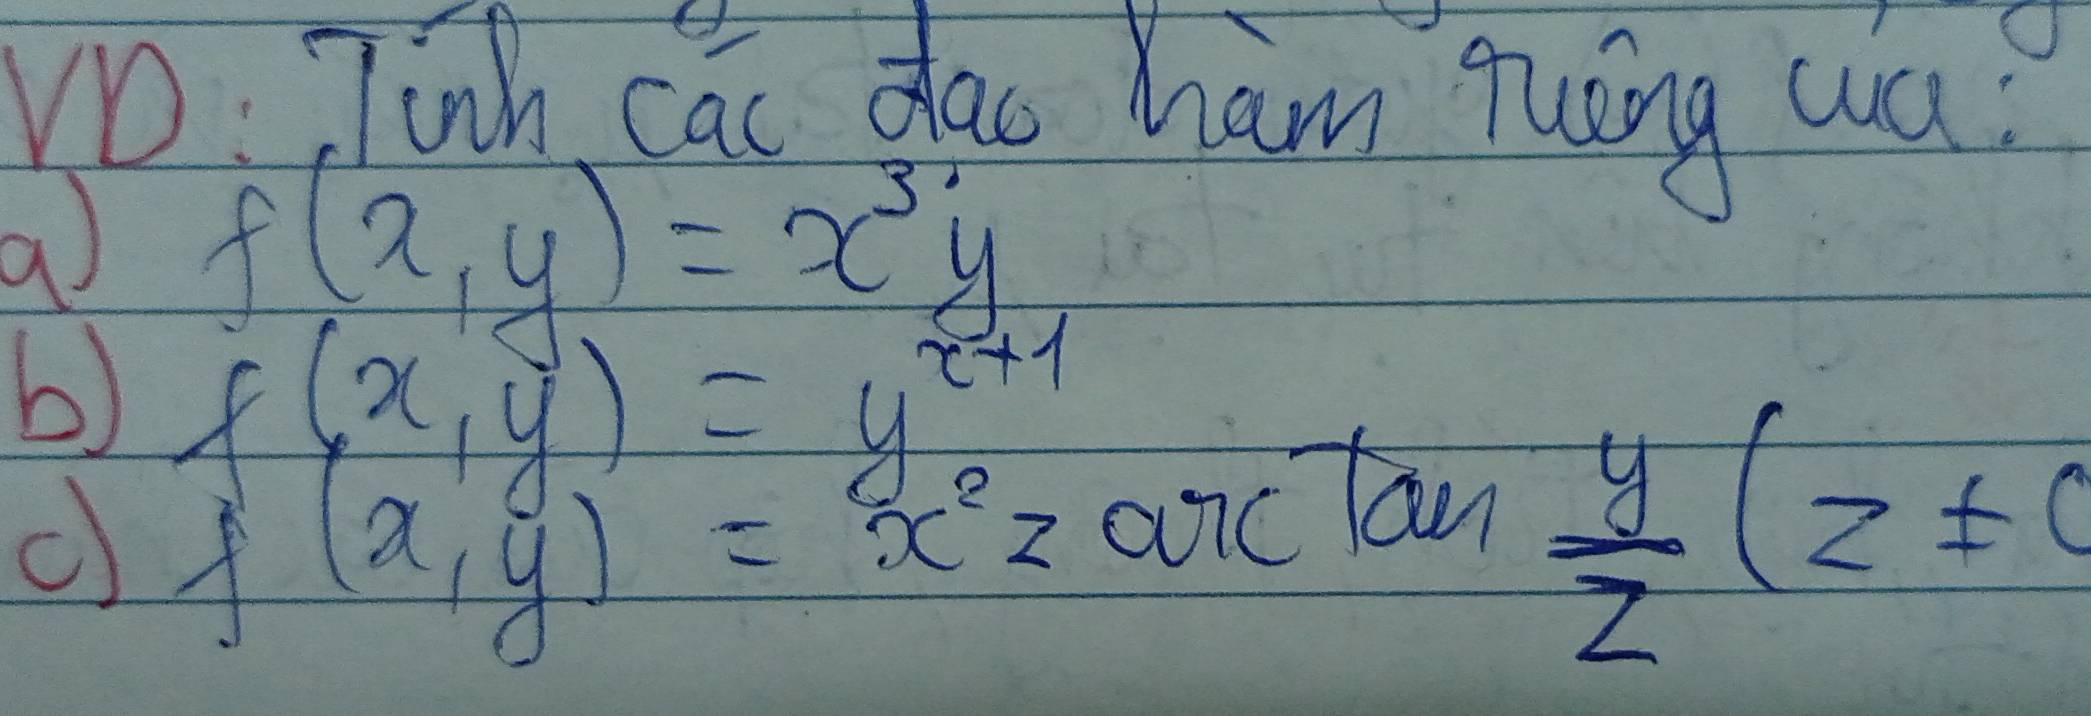 VD: Tính các đạo hàm riêng của:
a) f(x,y) = x³y
b) f(x,y) = y^{x+1}
c) f(x,y) = x²z arctan \frac{y}{z} (z ≠ 0